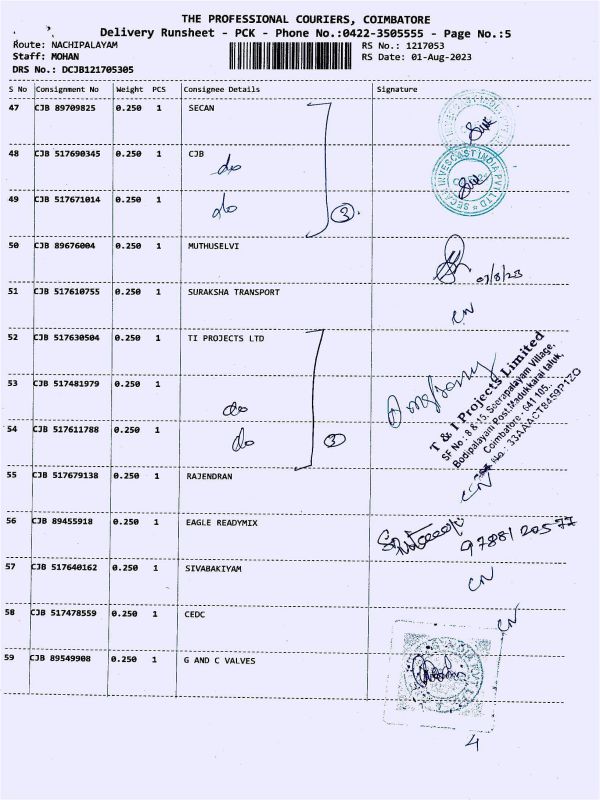 THE PROFESSIONAL COURIERS, COIMBATORE
Delivery Runsheet - PCK - Phone No.:0422-3505555 - Page No.:5
Route: NACHIPALAYAM RS No.: 1217053
Staff: MOHAN RS Date: 01-Aug-2023
DRS No.: DCJB121705305
S No Consignment No Weight PCS Consignee Details Signature
47 CJB 89709825 0.250 1 SECAN
48 CJB 517690345 0.250 1 CJB
do
SECAN INVESCAST INDIA PVT LTD
49 CJB 517671014 0.250 1
do
3
50 CJB 89676004 0.250 1 MUTHUSELVI
51 CJB 517610755 0.250 1 SURAKSHA TRANSPORT
CN
52 CJB 517630504 0.250 1 TI PROJECTS LTD
53 CJB 517481979 0.250 1
do
54 CJB 517611788 0.250 1
do
3
T & I Projects Limited
SF No : 8 & 15, Seerapalayam Village,
Bodipalayam Post, Madukkarai taluk,
Coimbatore - 641 105.
No.: 33AAACT8459P1ZO
55 CJB 517679138 0.250 1 RAJENDRAN
CN
56 CJB 89455918 0.250 1 EAGLE READYMIX
9788120577
57 CJB 517640162 0.250 1 SIVABAKIYAM
CN
58 CJB 517478559 0.250 1 CEDC
CN
59 CJB 89549908 0.250 1 G AND C VALVES
4